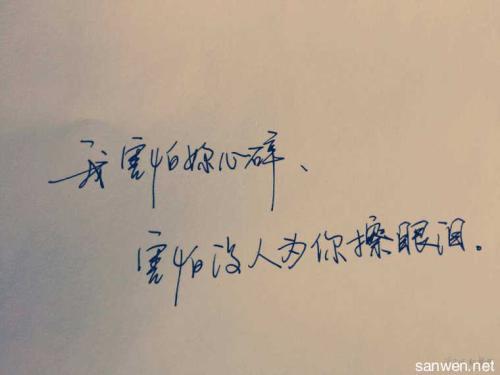 我害怕妳心碎、
害怕没人为你擦眼泪。
sanwen.net